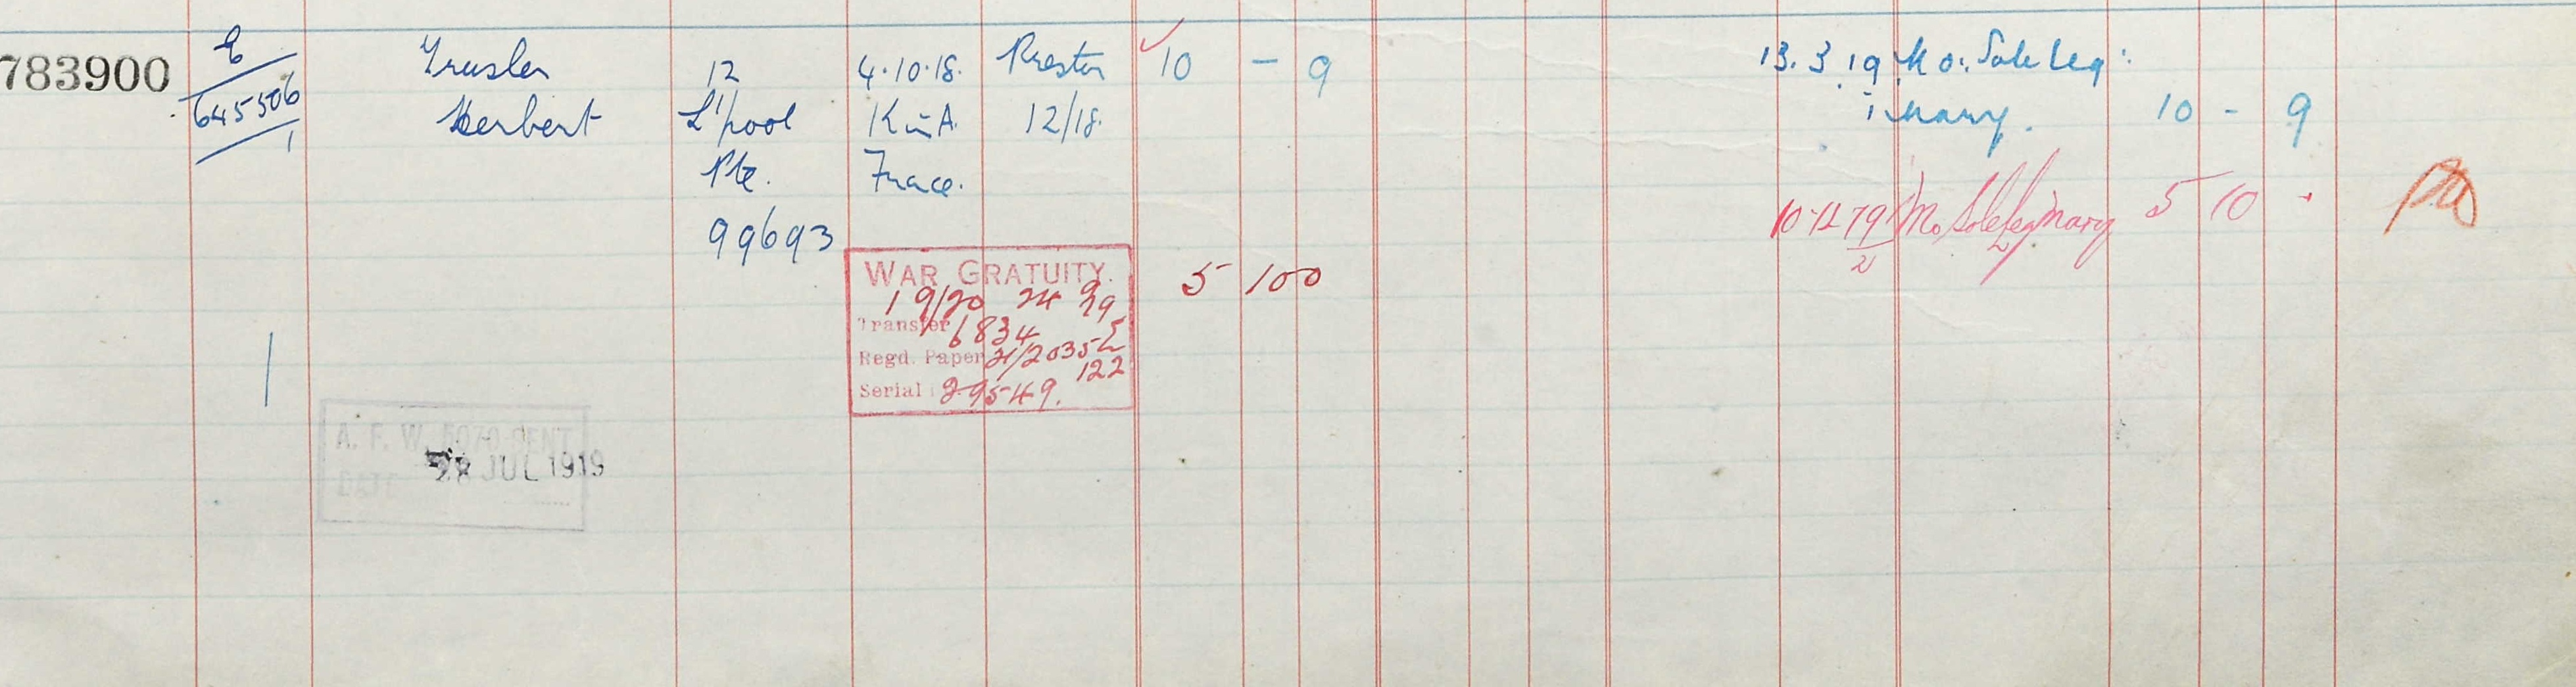 783900
E
645506
1
Trusler
Herbert
12
L'pool
Pte.
99693
4.10.18.
K in A.
Frace.
Preston
12/18.
10 - 9
13.3.19 Mo: Sole Leg:
Mary. 10 - 9
Mo Sole Leg Mary 5 10 -
WAR GRATUITY. 5 10 0
19/20
Transfer 6834
Regd. Paper
Serial 29549. 122
A. F. W. 5070 SENT
DATE 28 JUL 1919